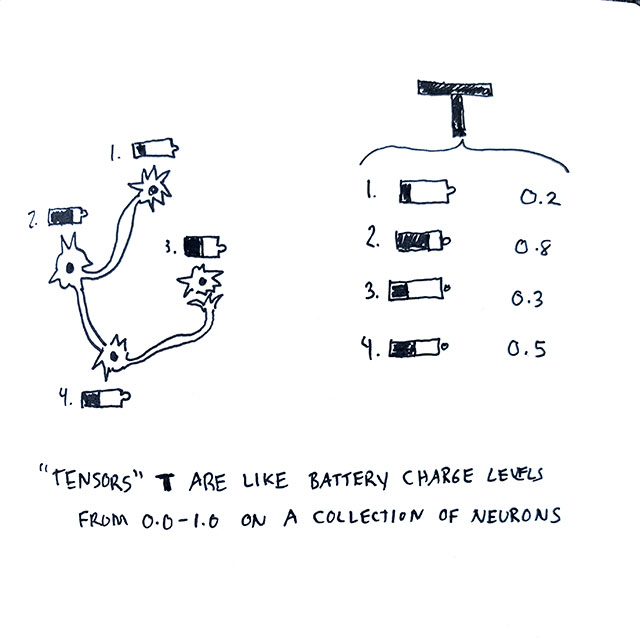 T
1.
2.
3.
4.
1. 0.2
2. 0.8
3. 0.3
4. 0.5
"TENSORS" T ARE LIKE BATTERY CHARGE LEVELS
FROM 0.0-1.0 ON A COLLECTION OF NEURONS